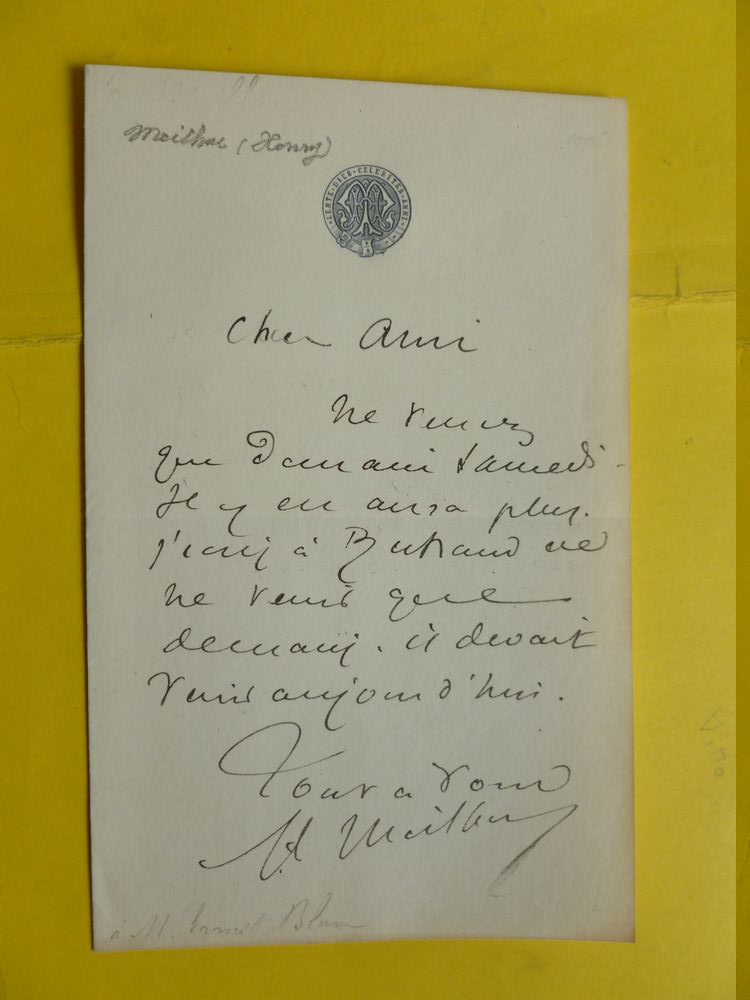 Meilhac (Henry)
LENTE·DIES·CELERITER·ANNI
Cher Ami
Ne venez
que Demain samedi.
Il y en aura plus.
J'écris à Bertrand de
ne venir que
demain. il devait
venir aujourd'hui.
Tout à vous
H Meilhac
à M. Ernest Blum